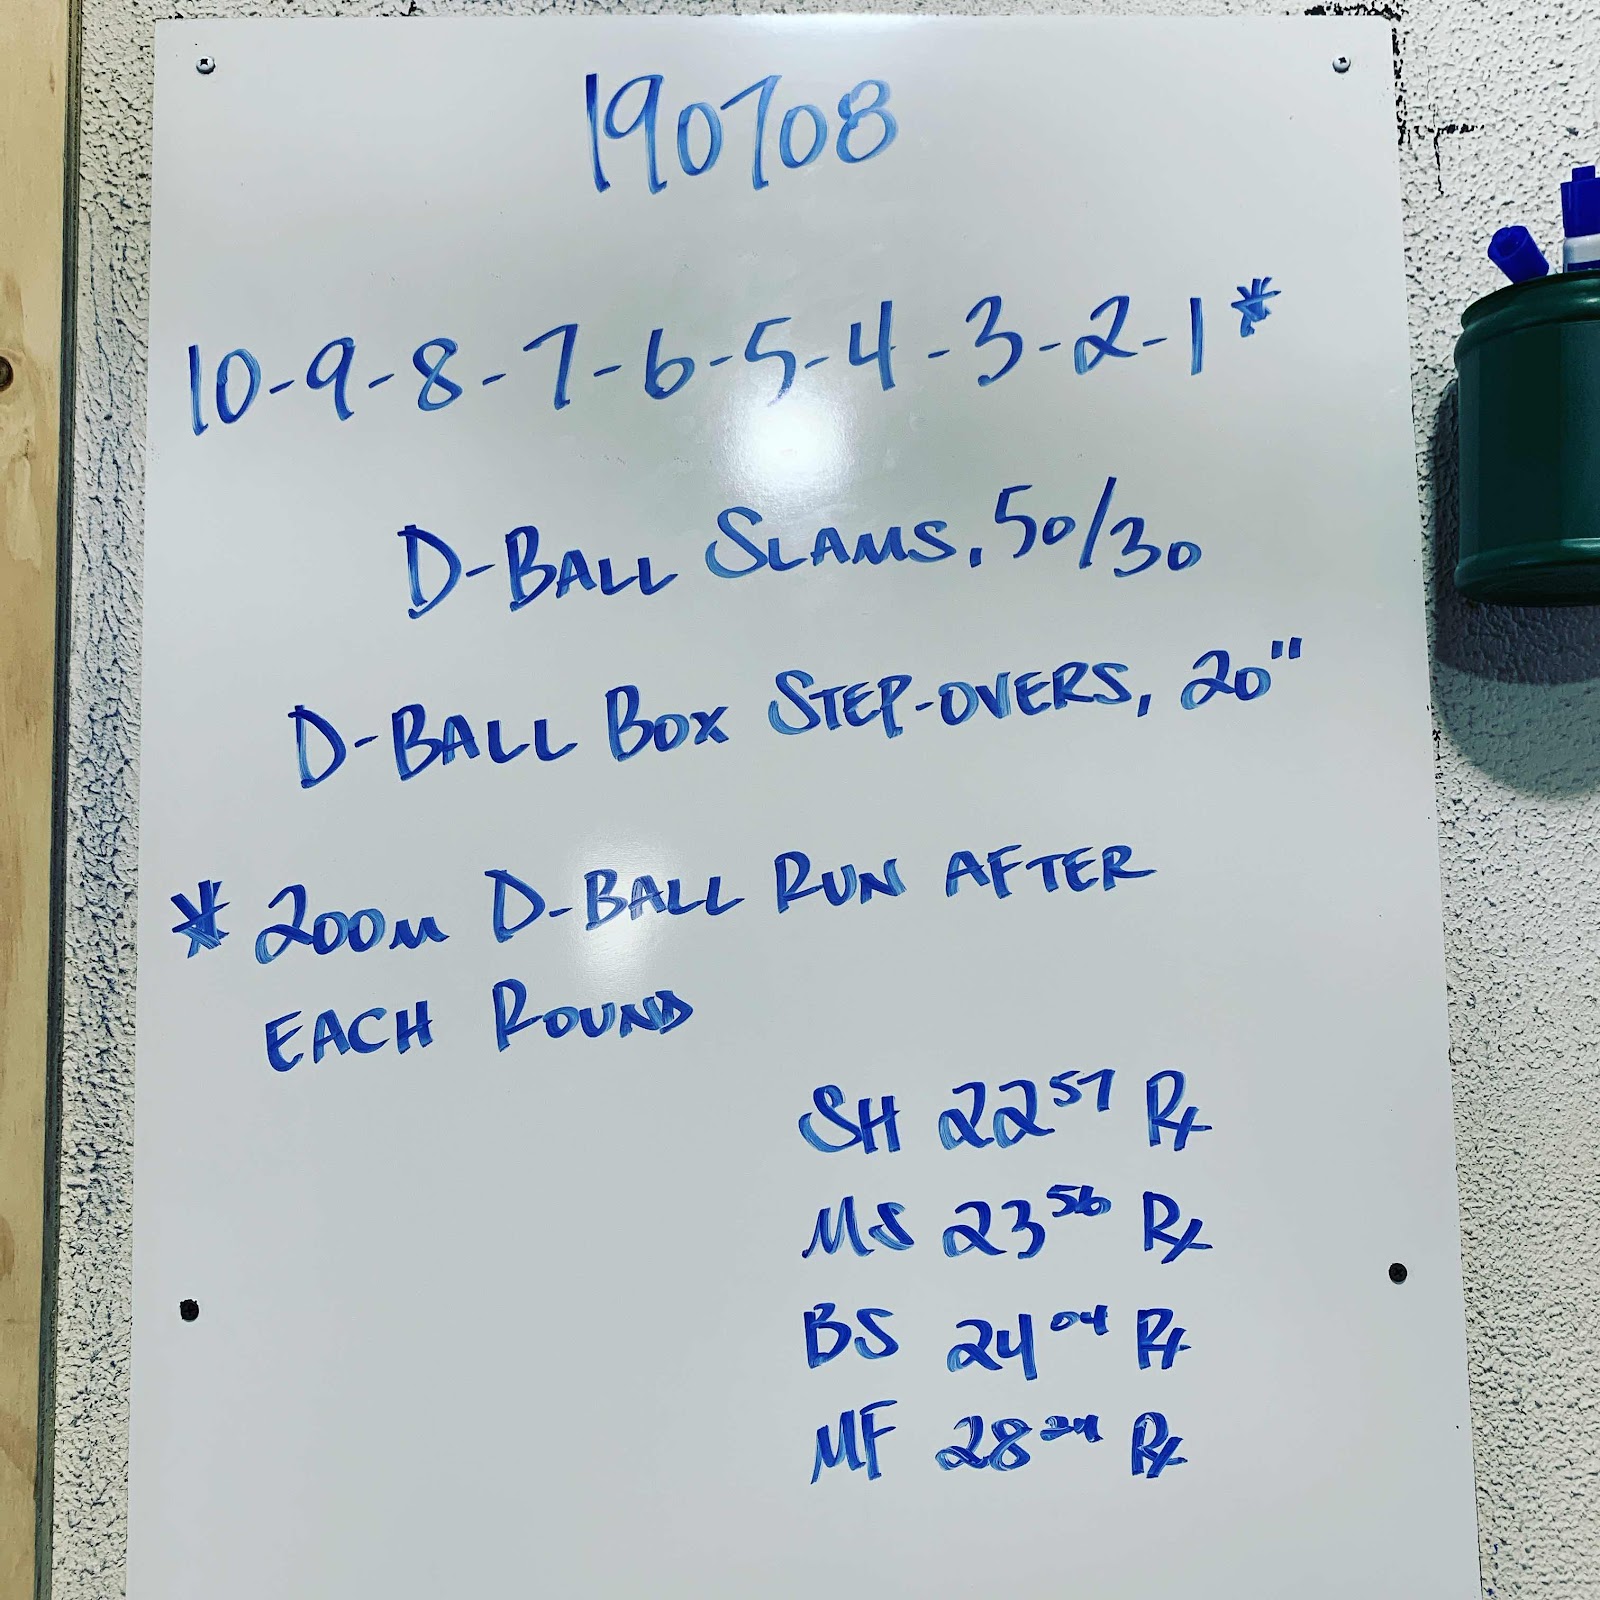 190708
10-9-8-7-6-5-4-3-2-1*
D-BALL SLAMS, 50/30
D-BALL BOX STEP-OVERS, 20"
* 200M D-BALL RUN AFTER
EACH ROUND
SH 22 57 Rx
MS 23 56 Rx
BS 24 04 Rx
MF 28 Rx